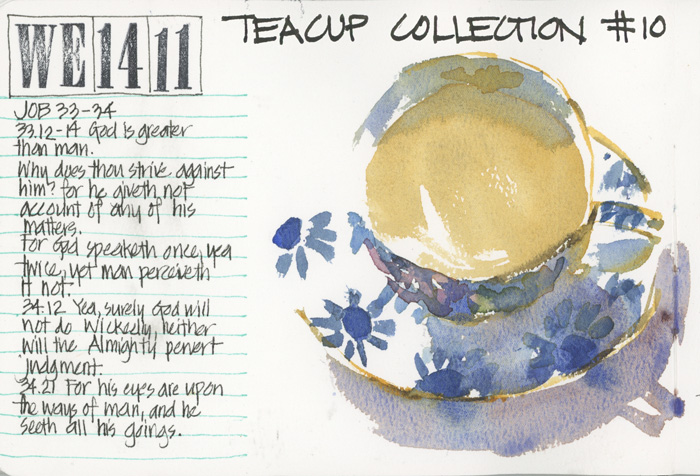 WE 14 11
TEACUP COLLECTION #10
JOB 33-34
33.12-14 God is greater
than man.
Why does thou strive against
him? for he giveth not
account of any of his
matters.
For God speaketh once, yea
twice, yet man perceiveth
it not.
34.12 Yea, surely God will
not do wickedly, neither
will the Almighty pervert
judgment.
34.21 For his eyes are upon
the ways of man, and he
seeth all his goings.